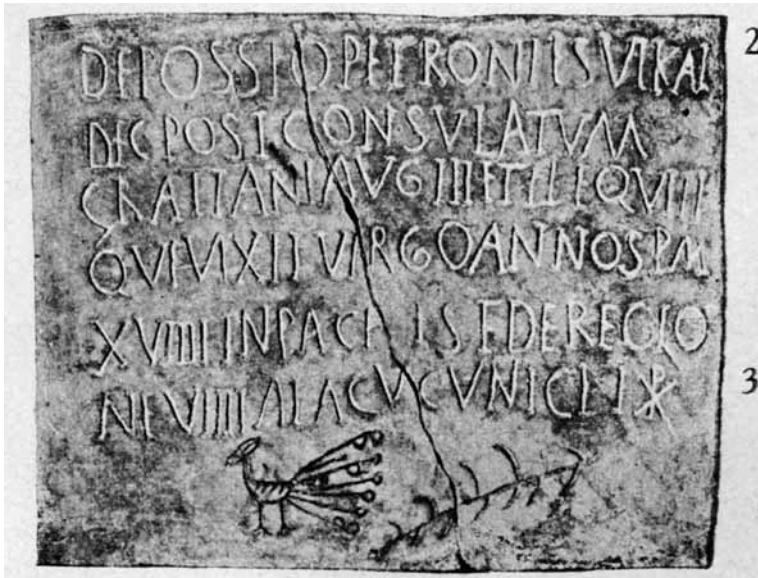 DEPOSSIO PETRONIES VI KAL
DEC POST CONSVLATVM
GRATIANI AVG III ET FL EQVITI
QVE VIXIT VIRGO ANNOS P M
XVIIII IN PACE IS E DE REGIO
NE VIIII A LACV CVNICLI ☧
2
3